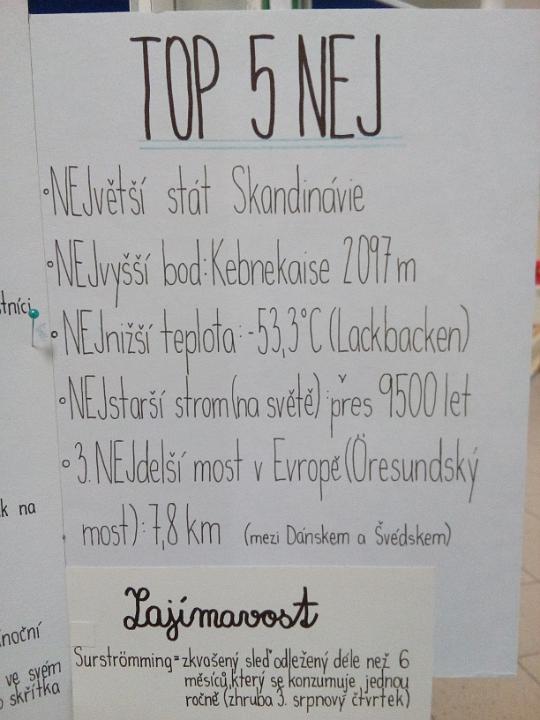 TOP 5 NEJ
◦NEJvětší stát Skandinávie
◦NEJvyšší bod:Kebnekaise 2097m
◦NEJnižší teplota:-53,3°C (Lackbacken)
◦NEJstarší strom(na světě):přes 9500 let
◦3.NEJdelší most v Evropě(Öresundský
most):7,8 km (mezi Dánskem a Švédskem)
Zajímavost
Surströmming=zkvašený sleď odležený déle než 6
měsíců,který se konzumuje jednou
ročně (zhruba 3. srpnový čtvrtek)
tníci
k na
noční
ve svém
skřítka